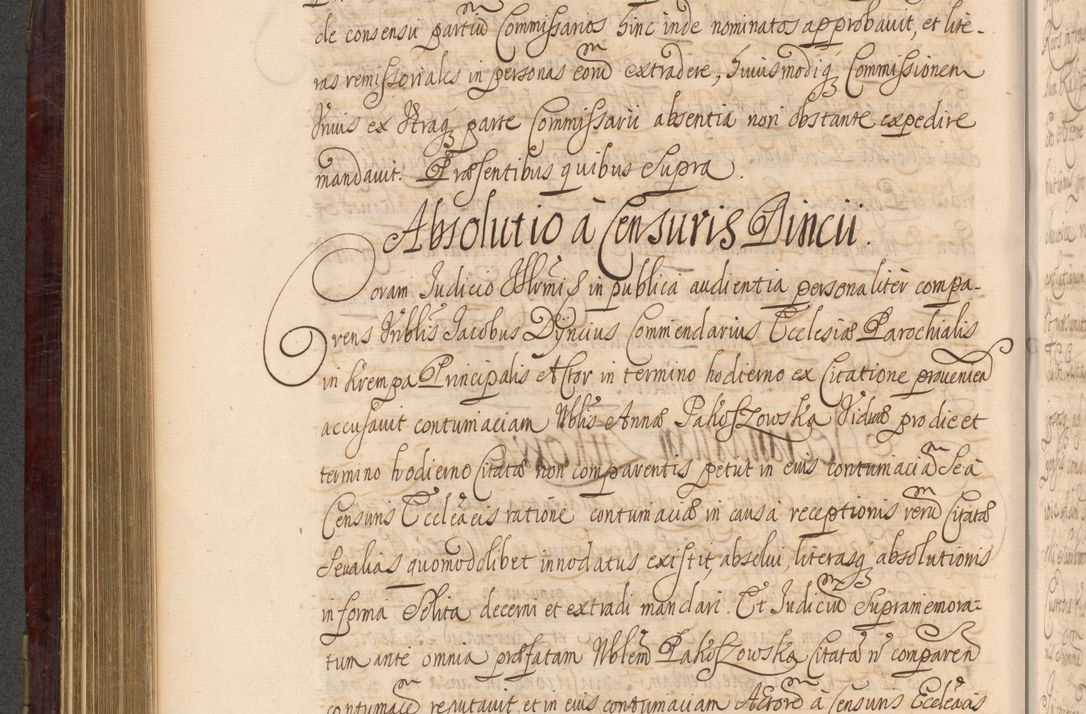 de consensu partiũ Commissarios hinc inde nominatos approbauit, et lite-
ras remissoriales in personas eorũ extradere, huiusmodiq3 Commissionem
Vnius ex Vtraq3 parte Commissarii absentia non obstante expedire
mandauit. Præsentibus quibus supra.
Absolutio à Censuris Dincii.
Coram Judicio in publica audientia personaliter compa-
rens Jacobus Dyncius Commendarius Ecclesiæ Parochialis
in Krempa Principalis Actor in termino hodierno ex Citatione prouenien
accusauit contumaciam Nblis Annæ Pakoszowska Viduæ pro die et
termino hodierno Citatæ non comparentis petut in eius contumaciã Se à
Censuris Eccleacis ratione contumaciæ in causa receptionis rerũ Citatæ
se alias quomodolibet innodatus existit, absolui, literasq3 absolutionis
in forma Solita decerni et extradi mandari. Et Judiciũ Supramemora-
tum ante omnia præfatam Nblem Pakoszowska Citatã ñ comparen
contumacẽ reputauit, et in eius contumaciam Actorẽ à Censuris Eccleacis